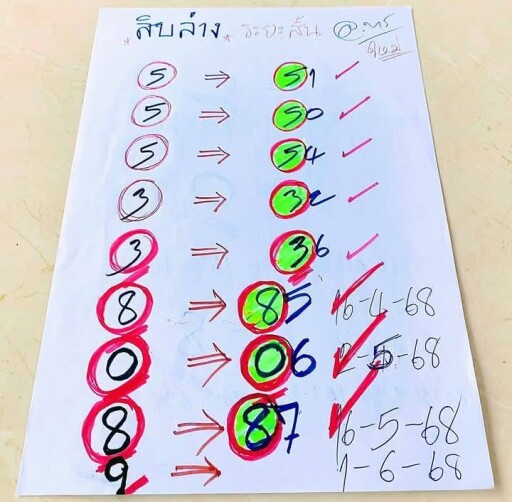 * สิบล่าง * ระยะสั้น
5 ⇒ 51 ✓
5 ⇒ 50 ✓
5 ⇒ 54 ✓
3 ⇒ 32 ✓
3 ⇒ 36 ✓
8 ⇒ 85 ✓ 16-4-68
0 ⇒ 06 ✓ 2-5-68
8 ⇒ 87 ✓ 16-5-68
9 ⇒ 1-6-68